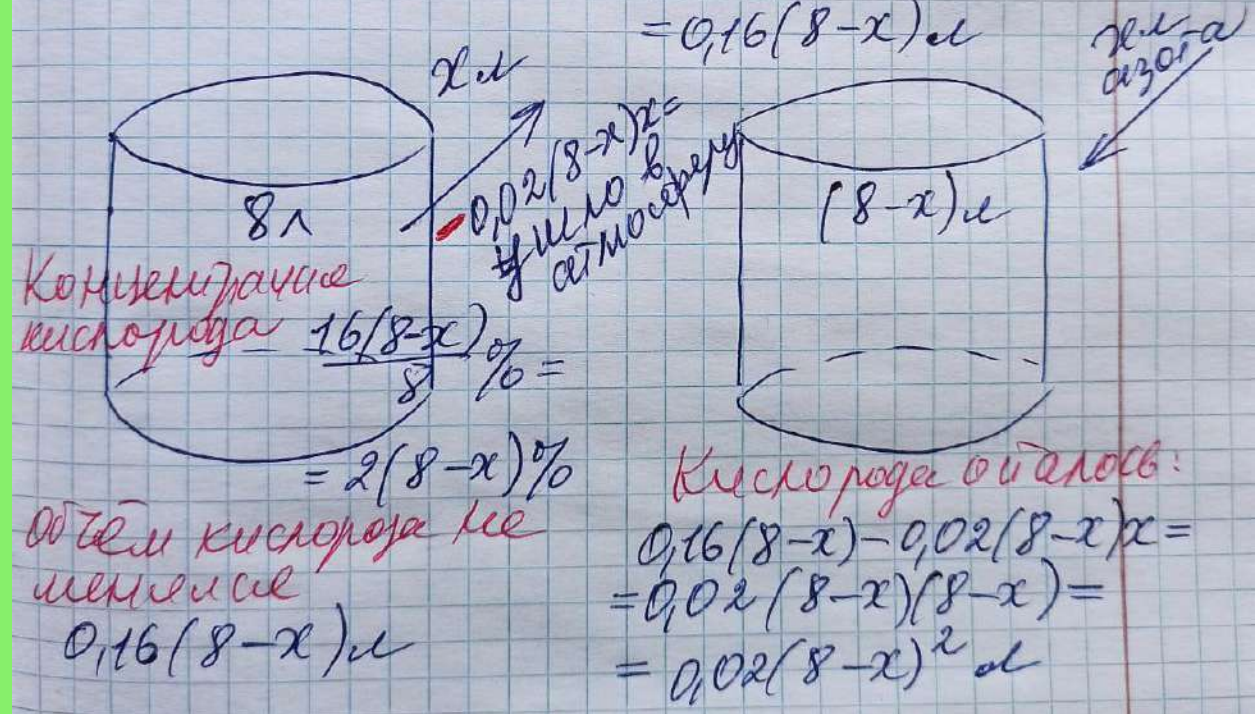 =0,16(8-x)л
xл
xл
азота
0,02(8-x)x=
ушло в
атмосферу
8л
(8-x)л
Концентрация
кислорода 16(8-x)/8 % =
= 2(8-x)%
Объём кислорода не
менялся
0,16(8-x)л
Кислорода осталось:
0,16(8-x)-0,02(8-x)x=
=0,02(8-x)(8-x)=
= 0,02(8-x)² л